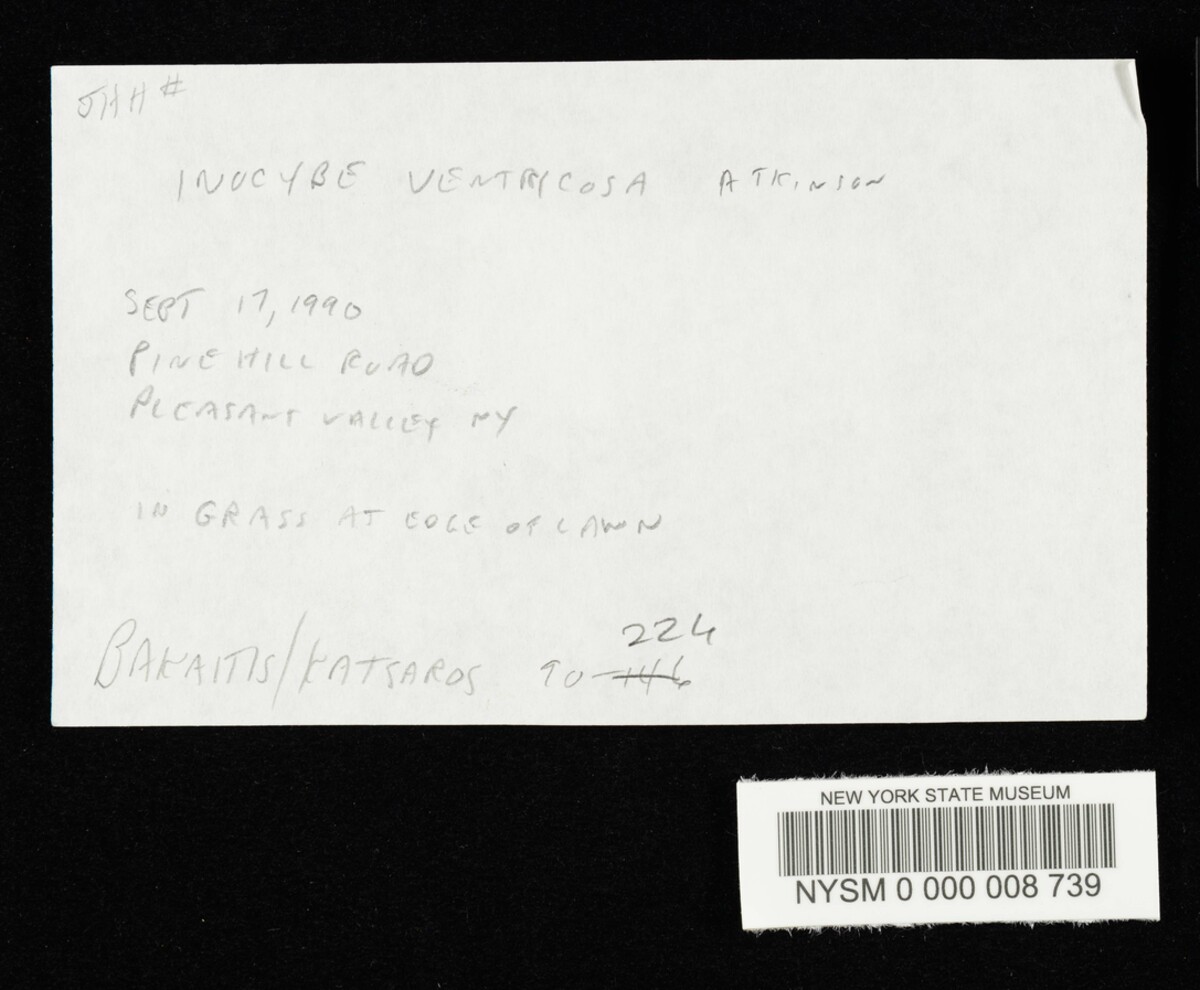 JHH #
INOCYBE VENTRICOSA ATKINSON
SEPT 17, 1990
PINE HILL ROAD
PLEASANT VALLEY NY
IN GRASS AT EDGE OF LAWN
224
BAKAITIS/KATSAROS 90-146
NEW YORK STATE MUSEUM
NYSM 0 000 008 739